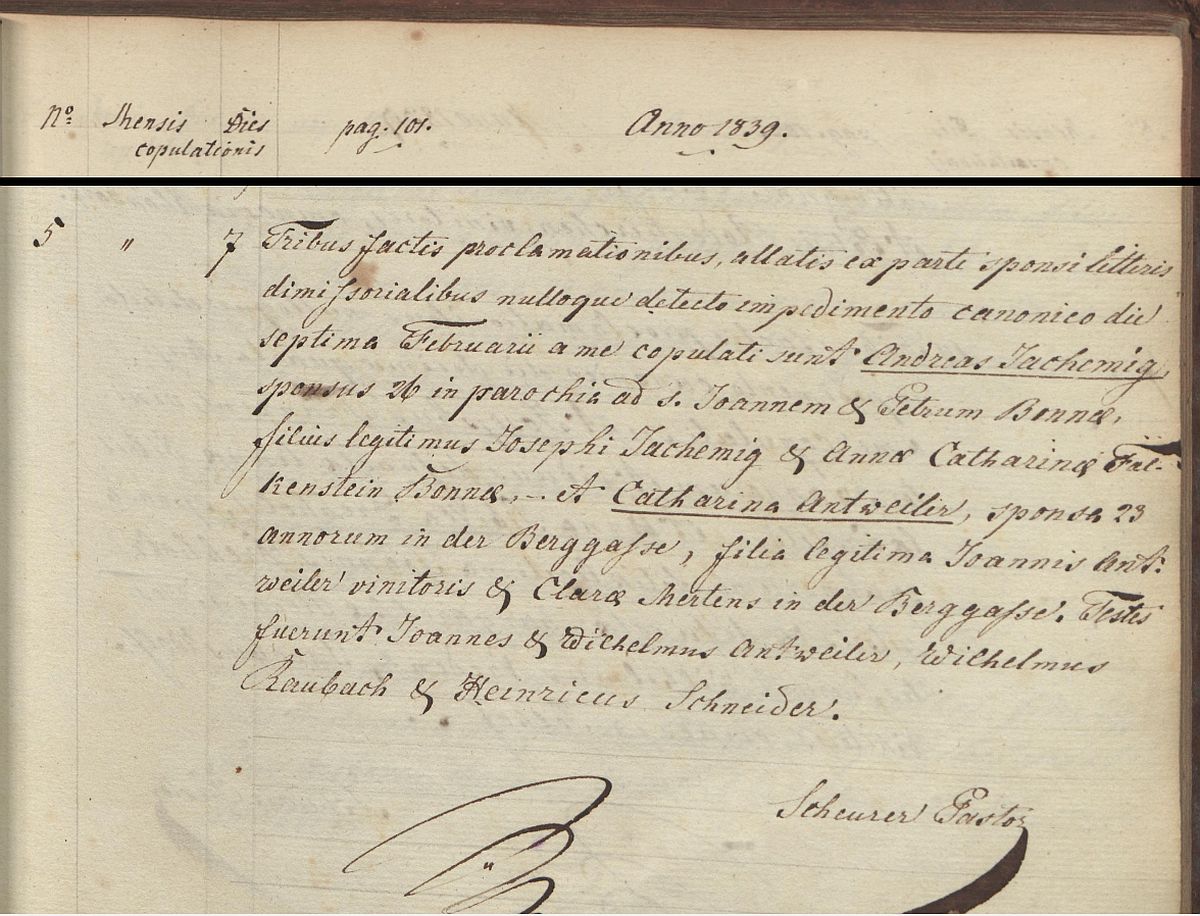 No Mensis Dies pag. 101. Anno 1839.
copulationis
5 " 7 Tribus factis proclamationibus, allatis ex parte sponsi litteris
dimissorialibus nulloque detecto impedimento canonico die
septima Februarii a me copulati sunt Andreas Jachemig,
sponsus 26 in parochia ad s. Joannem & Petrum Bonnæ,
filius legitimus Josephi Jachemig & Annæ Catharinæ Fal-
kenstein Bonnæ, - et Catharina Antweiler, sponsa 23
annorum in der Berggasse, filia legitima Joannis Ant-
weiler vinitoris & Claræ Mertens in der Berggasse. Testes
fuerunt Joannes & Wilhelmus Antweiler, Wilhelmus
Raubach & Heinricus Schneider.
Scheurer Pastor